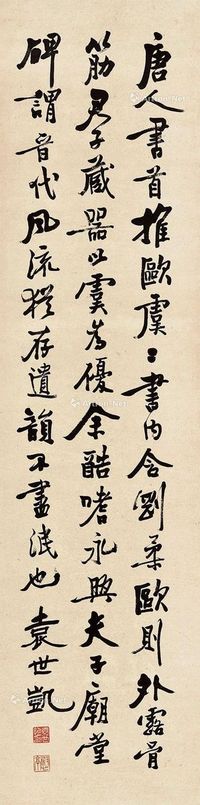 唐人書首推歐虞〻書內含剛柔歐則外露骨
筋君子藏器以虞為優余酷嗜永興夫子廟堂
碑謂晉代風流猶存遺韻不盡泯也袁世凱